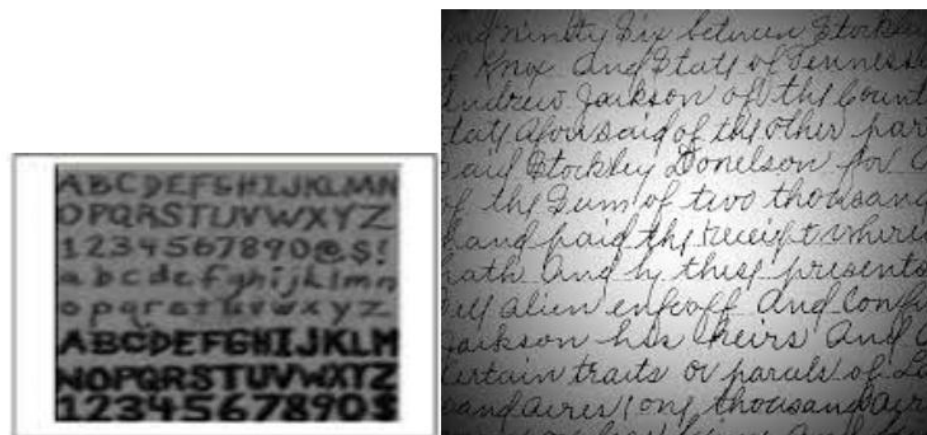 ABCDEFGHIJKLMN
OPQRSTUVWXYZ
1234567890@$!
abcdefghijklmn
opqrstuvwxyz
ABCDEFGHIJKLM
NOPQRSTUVWXYZ
1234567890$
nd ninety Six between Stockley
f Knox And State of Tennesse
Andrew Jackson of the Count
tate aforesaid of the other par
Said Stockley Donelson for
of the Sum of two thousand
hand paid the receipt where
hath And by these presents
alien enfeoff And Confi
Jackson his heirs And
certain traits or parcels of La
sand Acres (one thousand Acre